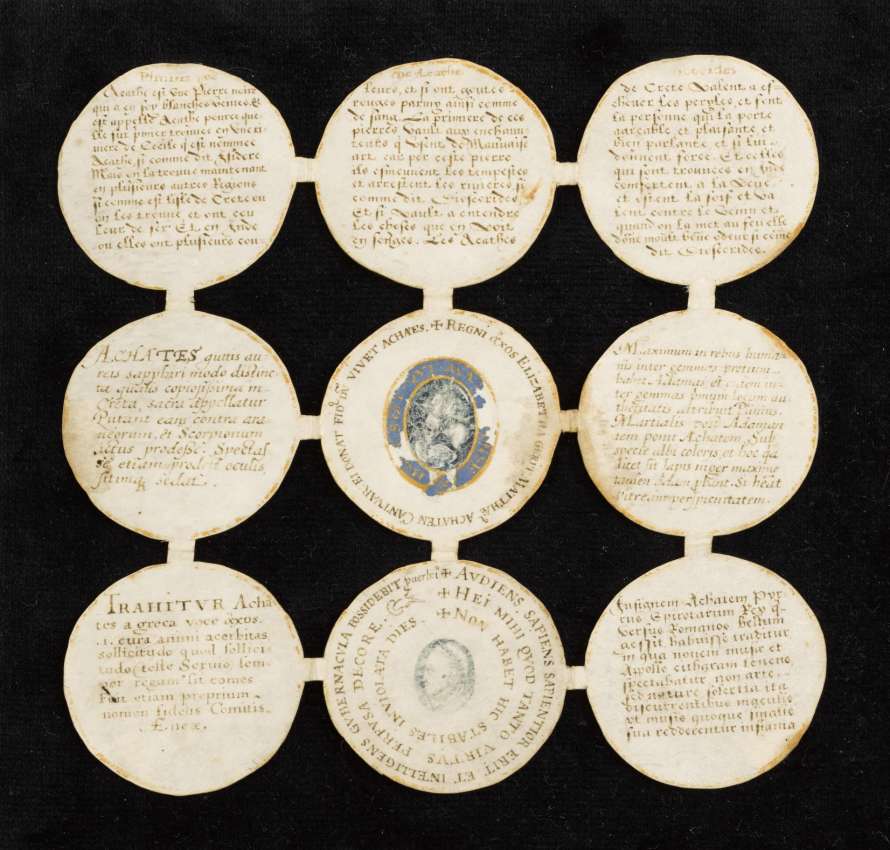 De Acathe
Acathe est vne Pierre noire
qui a en soy blanches veines. Et
est appellé Acathe pource que
elle fut primer trouuee en vne ri-
uiere de Cecile qi est nommee
Acathe, si comme dit Isidere
Mais en la trouue maintenant
en plusieurs autres Regions
si comme est l'isle de Crete ou
on les trouue et ont cou
leur de fer. Et en Inde
ou elles ont plusieurs cou-
leurs, et si ont goutes
rouges parmy ainsi comme
de sang. La primere de ces
pierres vault aux enchan
tents q vsent de Mauuaise
art car per ceste pierre
ils esmeuuent les tempestes
et arrestent les riuieres, si
comme dit Diescerides.
Et si vault a entendre
les choses que en voit
en senges. Les Acathes
de Crete Valent a es-
cheuer les peryles, et sent
la personne qui la porte
agreable et plaisante, et
bien parlante et si lui
dennent force. Et celles
qui sont trouuees en Inde
confertent a la Veue
et ostent la soif et va
lent centre le Venin et
quand on la met au feu elle
dene moult bene odeur si ceme
dit Diescerides.
ACHATES guttis au-
reis sapphiri modo distinc
ta qualis copiosissima in
Creta, sacra appellatur
Putant eam contra ara
neorum, et Scorpionum
ictus prodesse. Spectat
se etiam prodest oculis
sitimq sedat.
✠ REGNI ἄχος ELIZABETHA GERIT, MATTHÆ ACHATEN CANTVAR. ET DONAT FID DV VIVET ACHATES.
Maximum in rebus huma
nis inter gemmas pretium
habet Adamas et
ter gemmas primum locum au
thoritatis attribuit Plinius.
Martialis post Adaman
tem ponit Achatem, Sub
specie albi coloris, et hoc
licet sit lapis niger maxime
tamen
Vitream perspicuitatem.
TRAHITVR Acha
tes a greca voce ἄχος.
.i. cura animi acerbitas
sollicitudo quod sollici
tudo (teste Seruio) sem
per regum sit comes
Fuit etiam proprium
nomen fidelis Comitis
Æneæ.
✠ AVDIENS SAPIENS SAPIENTIOR ERIT ET INTELLIGENS GVBERNACVLA POSSIDEBIT
✠ HEI MIHI QVOD TANTO VIRTVS PERFVSA DECORE.
✠ NON HABET HIC STABILES INVIOLATA DIES
Insignem Achatem Pyr
rus Epirotarum Rex q
versus Romanos bellum
gessit habuisse traditur
in qua nouem musæ et
Apollo citharam tenens
spectabatur, non arte
sed naturæ solertia ita
discurrentibus maculis
vt musis quoque singulis
sua redderentur insignia